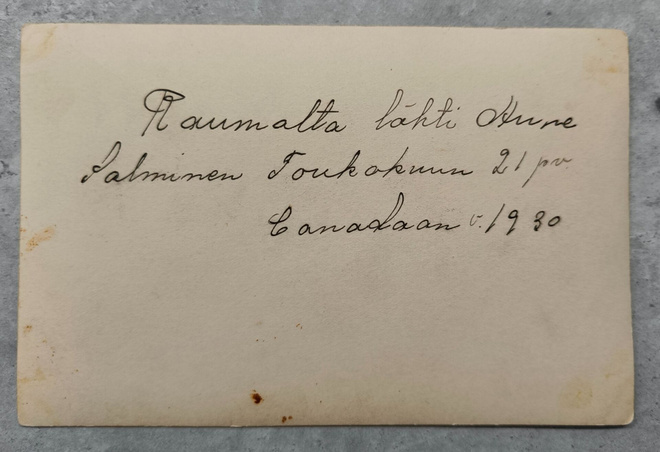 Raumalta lähti Aune
Salminen Toukokuun 21 pv.
Canadaan v. 1930